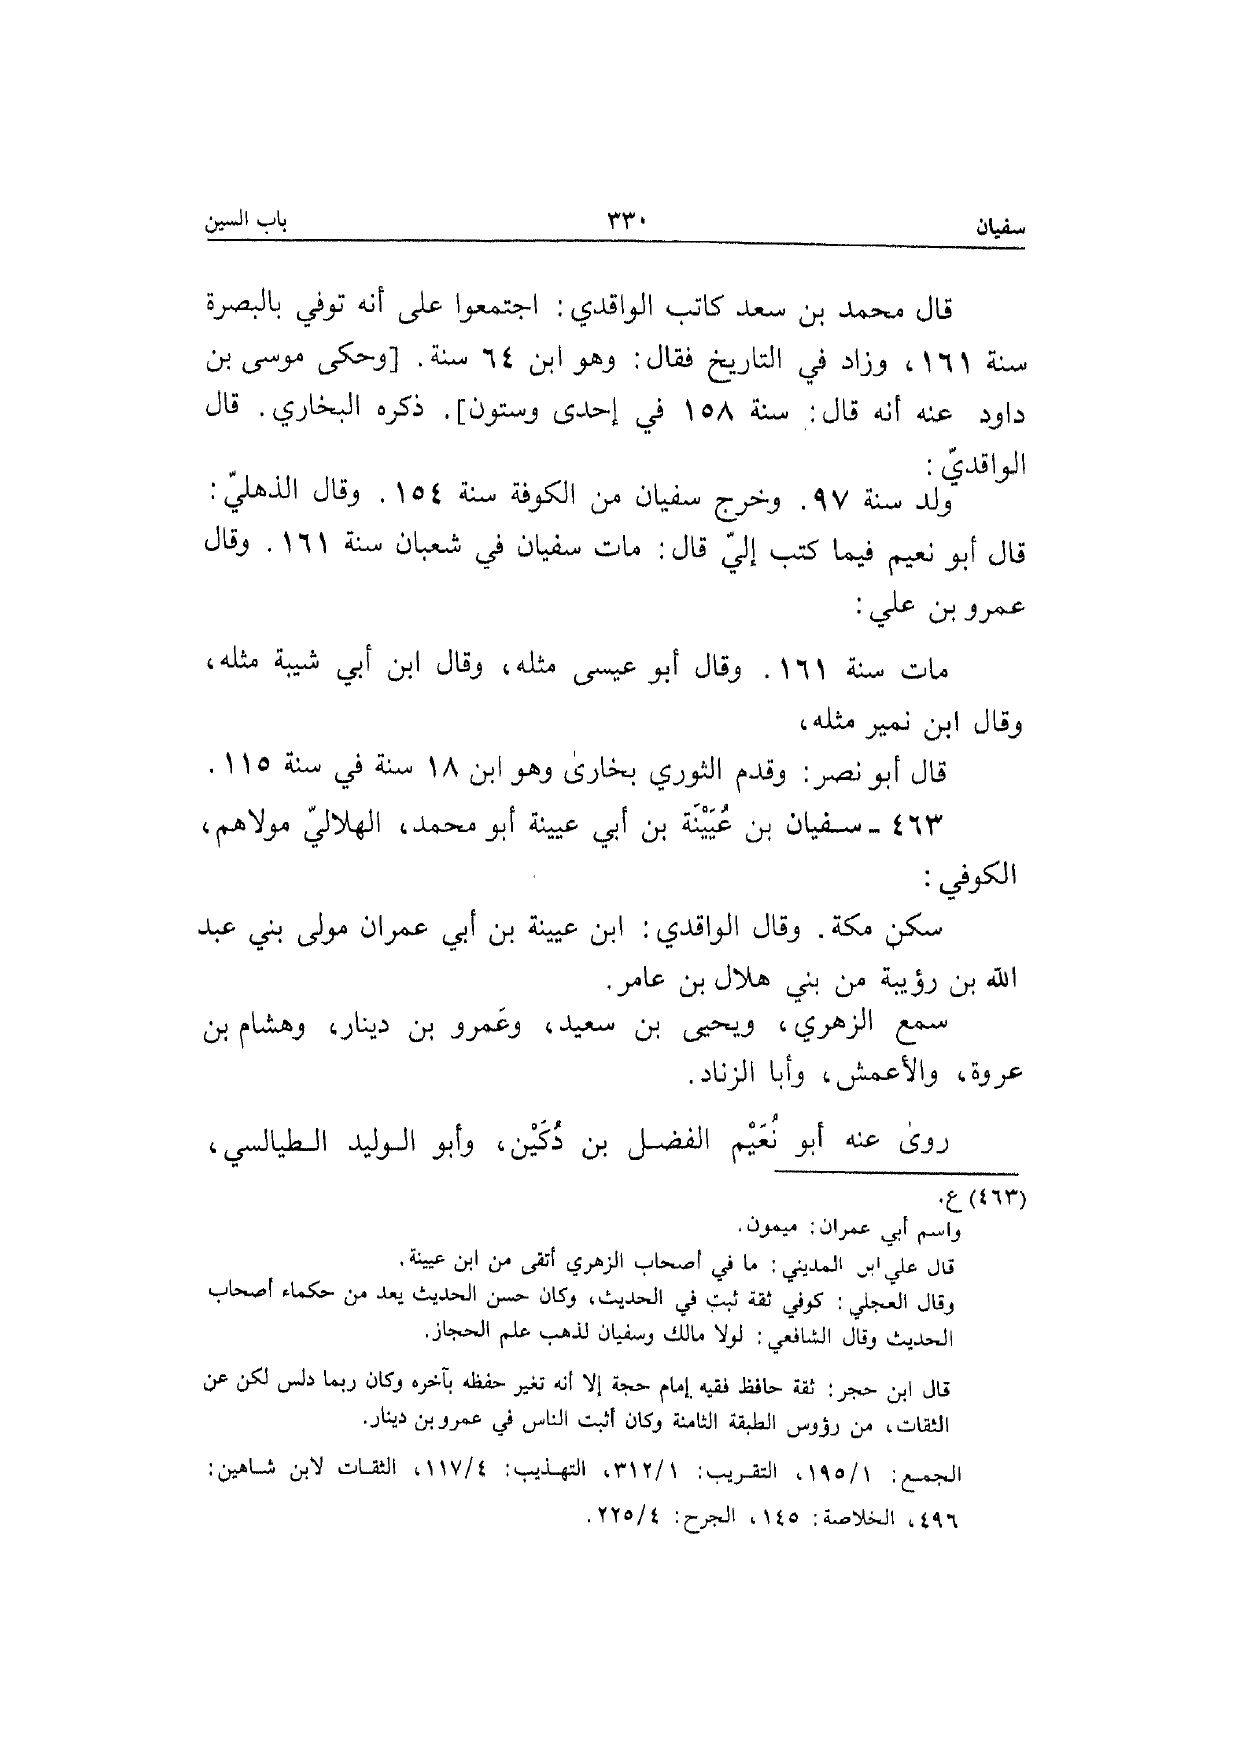 سفيان ٣٣٠ باب السين
قال محمد بن سعد كاتب الواقدي: اجتمعوا على أنه توفي بالبصرة
سنة ١٦١، وزاد في التاريخ فقال: وهو ابن ٦٤ سنة. [وحكى موسى بن
داود عنه أنه قال: سنة ١٥٨ في إحدى وستون]. ذكره البخاري. قال
الواقديّ:
ولد سنة ٩٧. وخرج سفيان من الكوفة سنة ١٥٤. وقال الذهليّ:
قال أبو نعيم فيما كتب إليّ قال: مات سفيان في شعبان سنة ١٦١. وقال
عمرو بن علي:
مات سنة ١٦١. وقال أبو عيسى مثله، وقال ابن أبي شيبة مثله،
وقال ابن نمير مثله،
قال أبو نصر: وقدم الثوري بخارىٰ وهو ابن ١٨ سنة في سنة ١١٥.
٤٦٣ ـ سفيان بن عُيَيْنَة بن أبي عيينة أبو محمد، الهلاليّ مولاهم،
الكوفي:
سكن مكة. وقال الواقدي: ابن عيينة بن أبي عمران مولى بني عبد
الله بن رؤيبة من بني هلال بن عامر.
سمع الزهري، ويحيى بن سعيد، وعَمرو بن دينار، وهشام بن
عروة، والأعمش، وأبا الزناد.
روىٰ عنه أبو نُعَيْم الفضل بن دُكَيْن، وأبو الوليد الطيالسي،
(٤٦٣) ع.
واسم أبي عمران: ميمون.
قال علي ابن المديني: ما في أصحاب الزهري أتقى من ابن عيينة.
وقال العجلي: كوفي ثقة ثبت في الحديث، وكان حسن الحديث يعد من حكماء أصحاب
الحديث وقال الشافعي: لولا مالك وسفيان لذهب علم الحجاز.
قال ابن حجر: ثقة حافظ فقيه إمام حجة إلا أنه تغير حفظه بآخره وكان ربما دلس لكن عن
الثقات، من رؤوس الطبقة الثامنة وكان أثبت الناس في عمرو بن دينار.
الجمع: ١/١٩٥، التقريب: ١/٣١٢، التهذيب: ٤/١١٧، الثقات لابن شاهين:
٤٩٦، الخلاصة: ١٤٥، الجرح: ٤/٢٢٥.